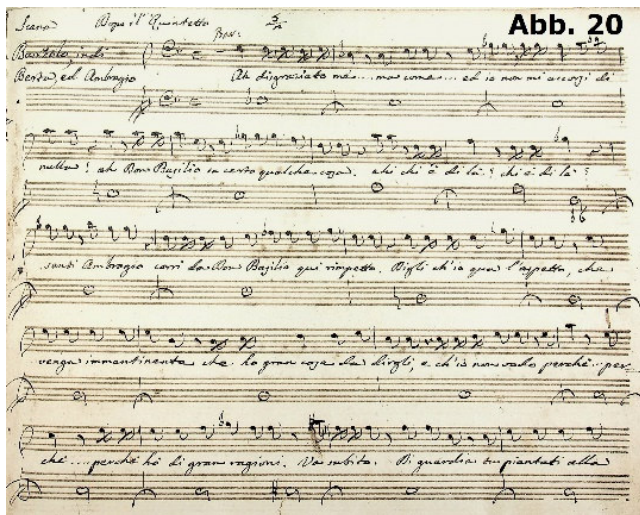 Abb. 20
Scena Dopo il Quintetto
Bartolo, indi
Berta, ed Ambrogio
Bar:
Ah disgraziato me... ma come... ed io non mi accorsi di
nulla! ah Don Basilio sa certo qualche cosa. ehi chi è di là? chi è di là?
senti Ambrogio corri da Don Basilio qui rimpetto. Digli ch'io qua l'aspetto, che
venga immantinente che ho gran cose da dirgli, e ch'io non vado perchè.. per-
chè... perchè hò di gran ragioni. Va subito. Di guardia tu piantati alla